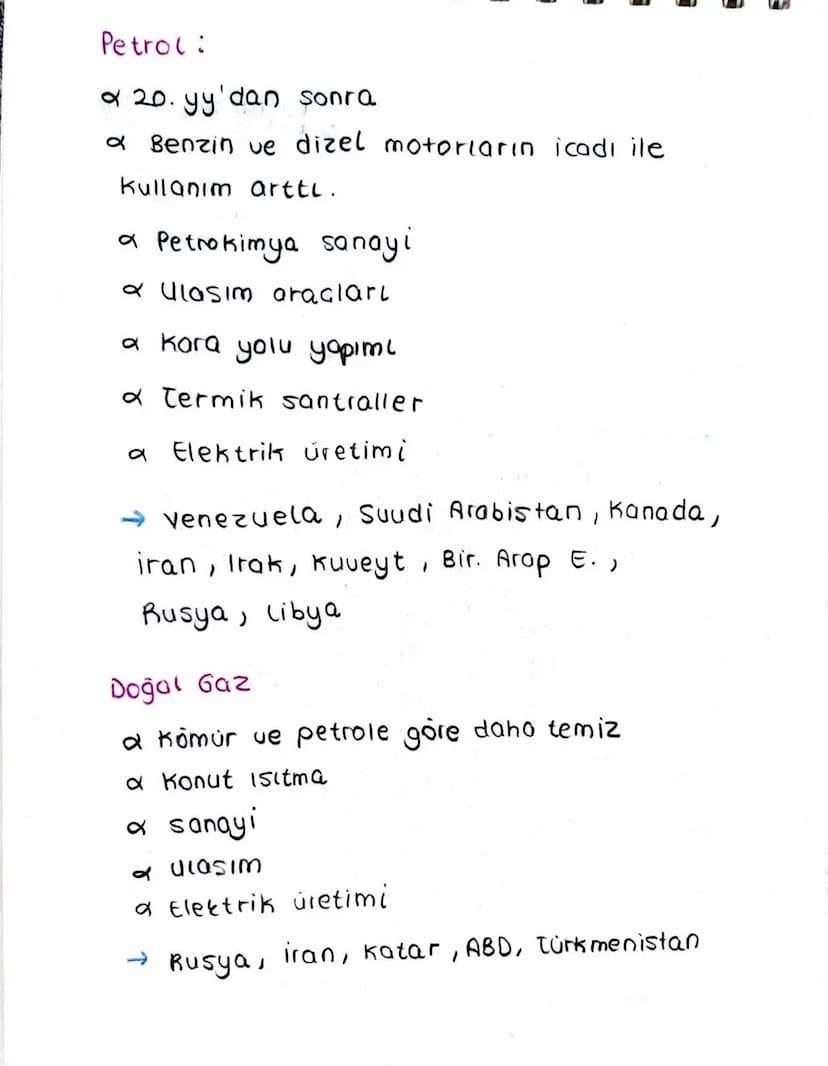 Petrol :
α 20. yy'dan sonra
α Benzin ve dizel motorların icadı ile
kullanım arttı.
α Petrokimya sanayi
α Ulasım aracları
α Kara yolu yapımı
α Termik santraller
α Elektrik üretimi
→ Venezuela, Suudi Arabistan, Kanada,
iran, Irak, Kuveyt, Bir. Arap E.,
Rusya, Libya
Doğal Gaz
α Kömür ve petrole göre daha temiz
α Konut ısıtma
α sanayi
α ulasım
α Elektrik üretimi
→ Rusya, iran, Katar, ABD, Türkmenistan